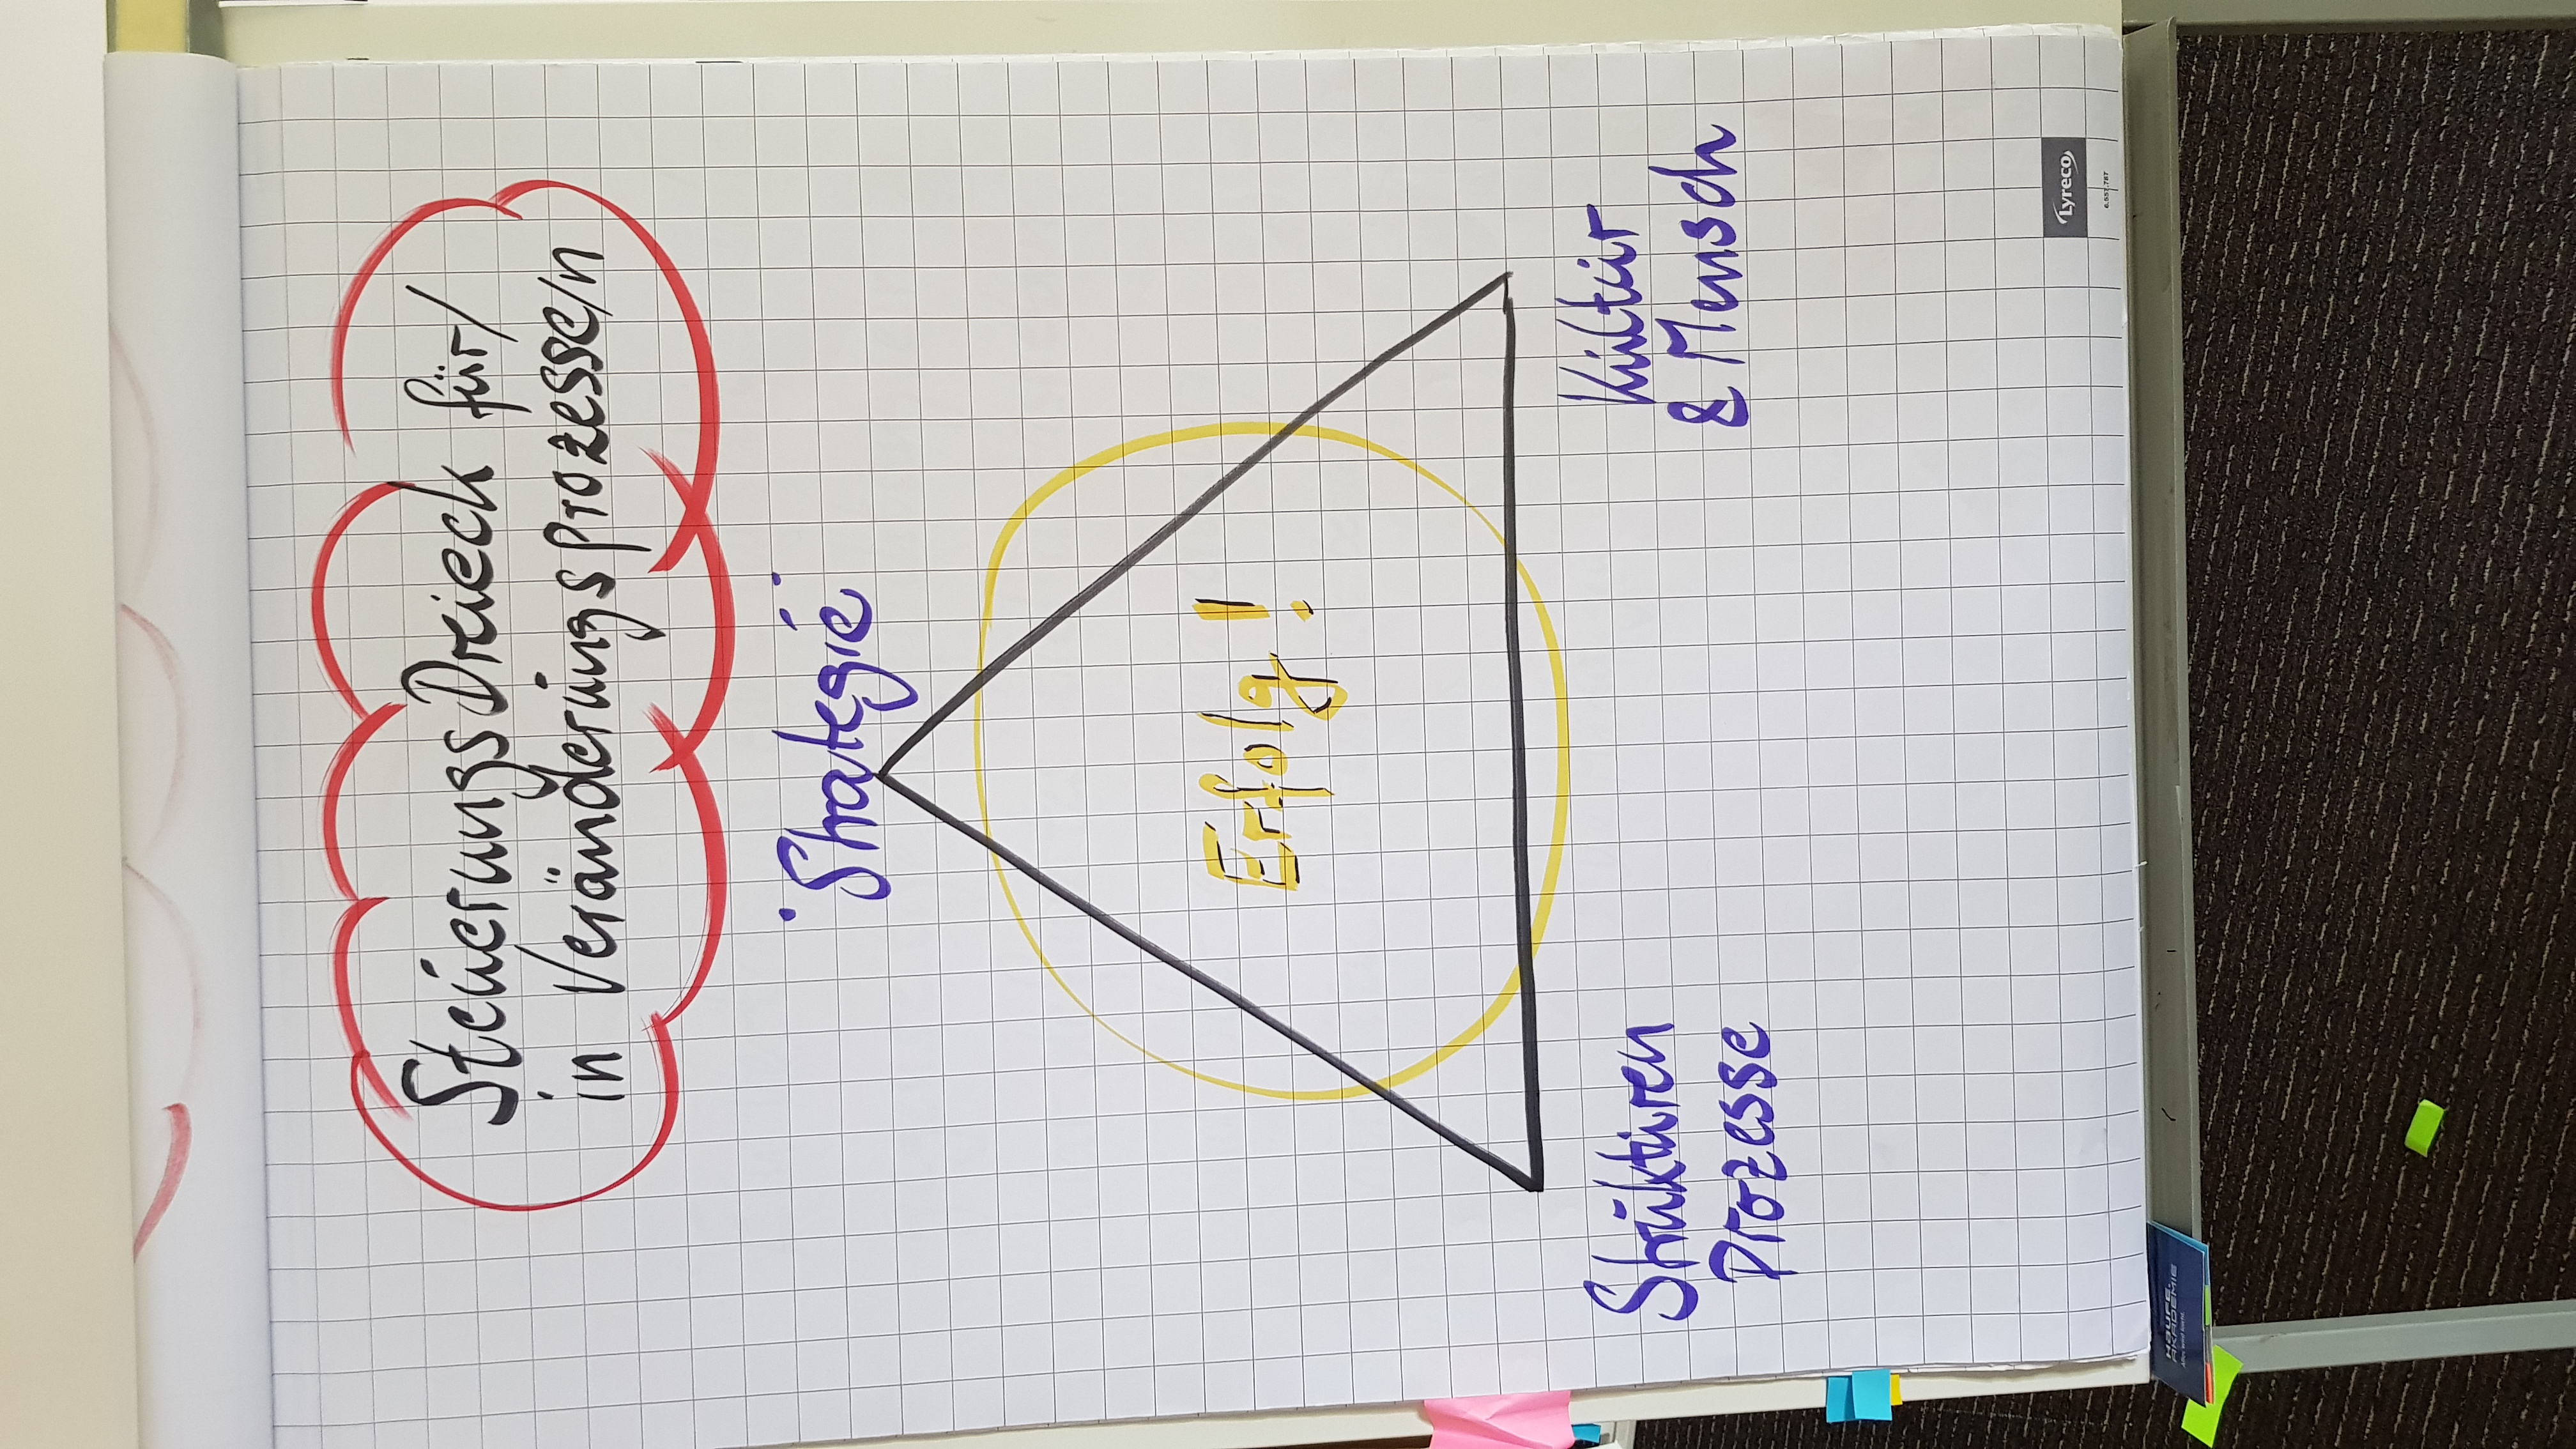 SteuerungsDreieck für/
in Veränderungsprozesse/n
"Strategie"
Erfolg!
Strukturen
Prozesse
Kultur
& Mensch
Lyreco
6.557.787
HAUFE.
AKADEMIE